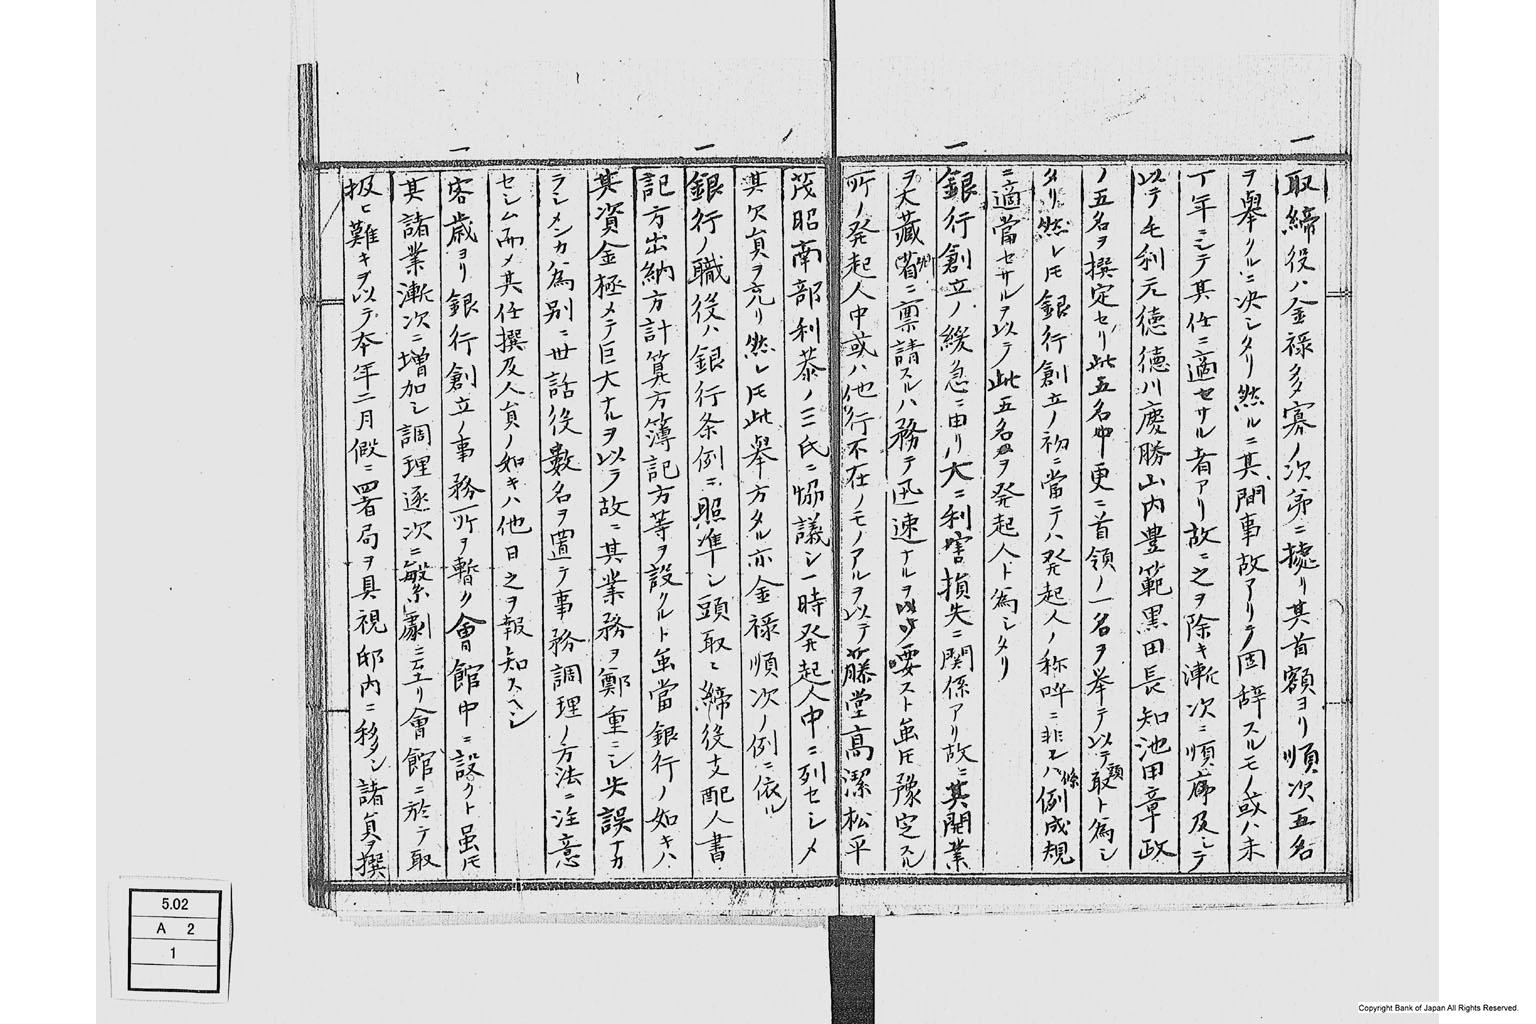 一
取締役ハ金禄多寡ノ次第ニ據リ其首額ヨリ順次五名
ヲ挙クルニ决シタリ然ルニ其間事故アリテ固辞スルモノ或ハ未
丁年ニシテ其任ニ適セサル者アリ故ニ之ヲ除キ漸次ニ順席及シテ
以テ毛利元徳徳川慶勝山内豊範黒田長知池田章政
ノ五名ヲ撰定セリ此五名中更ニ首領ノ一名ヲ挙テ以テ頭取ト為シ
タリ然レ𪜈銀行創立ノ初ニ當テハ発起人ノ称呼ニ非レハ條例成規
ニ適當セサルヲ以テ此五名ヲ発起人ト為シタリ
一
銀行創立ノ緩急ニ由リ大ニ利害損失ニ関係アリ故ニ其開業
ヲ大藏省ニ禀請スルハ務テ迅速ナルヲ要スト虽𪜈豫定スル
所ノ発起人中或ハ他行不在ノモノアルヲ以テ藤堂高潔松平
茂昭南部利恭ノ三氏ニ協議シ一時発起人中ニ列セシメ
其欠員ヲ充リ然レ𪜈此挙方タル亦金禄順次ノ例ニ依ル
一
銀行ノ職役ハ銀行条例ニ照準シ頭取取締役支配人書
記方出納方計算方簿記方等ヲ設クルト虽當銀行ノ如キハ
其資金極メテ巨大ナルヲ以テ故ニ其業務ヲ鄭重ニシ失誤ナカ
ラシメンカ為別ニ世話役数名ヲ置テ事務調理ノ方法ニ注意
セシム而〆其任撰及人員ノ如キハ他日之ヲ報知スヘシ
一
客歳ヨリ銀行創立ノ事務所ヲ暫ク會館中ニ設クト虽𪜈
其諸業漸次ニ増加シ調理逐次ニ繁劇ニ至リ會館ニ於テ取
扱ヒ難キヲ以テ本年二月假ニ四者局ヲ具視邸内ニ移シ諸員ヲ撰
5.02
A 2
1
Copyright Bank of Japan All Rights Reserved.